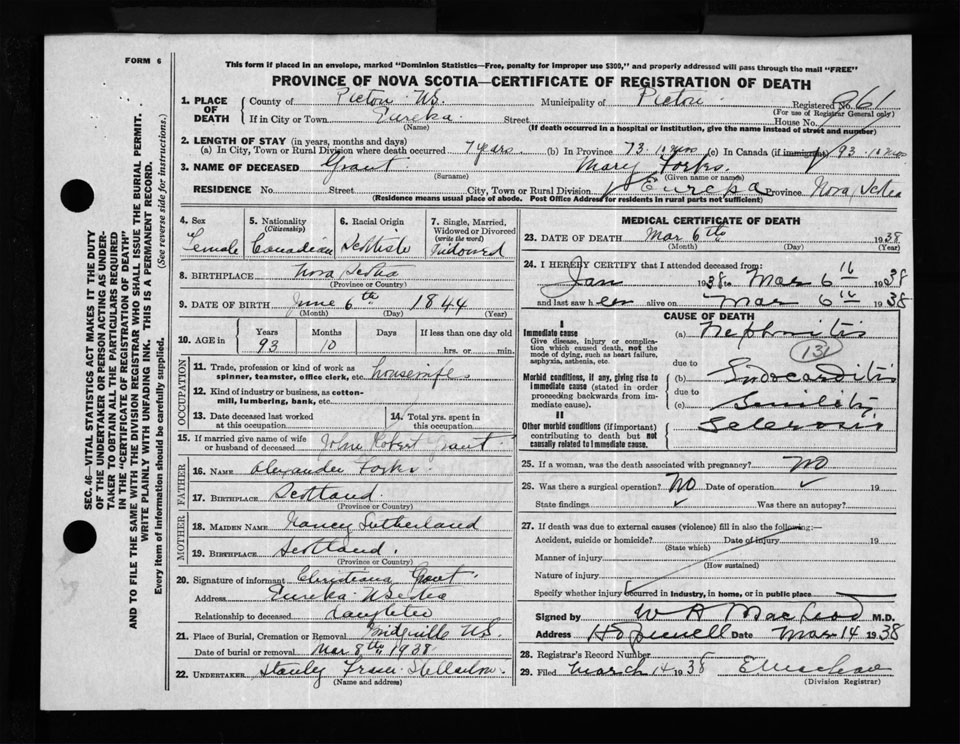 FORM 6
This form if placed in an envelope, marked "Dominion Statistics—Free, penalty for improper use $300," and properly addressed will pass through the mail "FREE"
PROVINCE OF NOVA SCOTIA—CERTIFICATE OF REGISTRATION OF DEATH
1. PLACE OF DEATH County of Pictou N.S. Municipality of Pictou Registered No.
(For use of Registrar General only)
If in City or Town Eureka Street House No.
(Name) (If death occurred in a hospital or institution, give the name instead of street and number)
2. LENGTH OF STAY (in years, months and days)
(a) In City, Town or Rural Division where death occurred 7 years (b) In Province 73. 10 mos (c) In Canada (if immigrant) 93. 10 mos
3. NAME OF DECEASED Grant Mary Forbs
(Surname) (Given name or names)
RESIDENCE No. Street City, Town or Rural Division Eureka Province Nova Scotia
(Residence means usual place of abode. Post Office Address for residents in rural parts not sufficient)
4. Sex Female
5. Nationality (Citizenship) Canadian
6. Racial Origin Scottish
7. Single, Married, Widowed or Divorced (write the word) Widowed
8. BIRTHPLACE Nova Scotia
(Province or Country)
9. DATE OF BIRTH June 6th 1844
(Month) (Day) (Year)
10. AGE in Years 93 Months 10 Days If less than one day old hrs. or min.
OCCUPATION
11. Trade, profession or kind of work as spinner, teamster, office clerk, etc. housewife
12. Kind of industry or business, as cotton-mill, lumbering, bank, etc.
13. Date deceased last worked at this occupation
14. Total yrs. spent in this occupation
15. If married give name of wife or husband of deceased John Robert Grant
FATHER
16. NAME Alexander Forbs.
17. BIRTHPLACE Scotland.
(Province or Country)
MOTHER
18. MAIDEN NAME Nancy Sutherland
19. BIRTHPLACE Scotland.
(Province or Country)
20. Signature of informant Christiana Grant
Address Eureka N Scotia
Relationship to deceased daughter
21. Place of Burial, Cremation or Removal Bridgeville N.S.
Date of burial or removal Mar 8th 1938
22. UNDERTAKER Stanley Fraser Stellarton
(Name and address)
MEDICAL CERTIFICATE OF DEATH
23. DATE OF DEATH Mar 6th 1938
(Month) (Day) (Year)
24. I HEREBY CERTIFY that I attended deceased from:
Jan 1938 to Mar 6th 1938
and last saw her alive on Mar 6th 1938
CAUSE OF DEATH
I
Immediate cause
Give disease, injury or complication which caused death, not the mode of dying, such as heart failure, asphyxia, asthenia, etc.
(a) Nephritis
131
due to
Morbid conditions, if any, giving rise to immediate cause (stated in order proceeding backwards from immediate cause).
(b) Endocarditis
due to
(c) Senility
II
Other morbid conditions (if important) contributing to death but not causally related to immediate cause.
Sclerosis
25. If a woman, was the death associated with pregnancy? No
26. Was there a surgical operation? No Date of operation 19
State findings Was there an autopsy?
27. If death was due to external causes (violence) fill in also the following:—
Accident, suicide or homicide? Date of injury 19
(State which)
Manner of injury
(How sustained)
Nature of injury
Specify whether injury occurred in industry, in home, or in public place
Signed by W A MacLeod M.D.
Address Hopewell Date Mar 14 1938
28. Registrar's Record Number
29. Filed March 14 1938
(Division Registrar)
SEC. 46—VITAL STATISTICS ACT MAKES IT THE DUTY
OF THE UNDERTAKER OR PERSON ACTING AS UNDER-
TAKER TO OBTAIN ALL THE PARTICULARS REQUIRED
IN THE "CERTIFICATE OF REGISTRATION OF DEATH"
AND TO FILE THE SAME WITH THE DIVISION REGISTRAR WHO SHALL ISSUE THE BURIAL PERMIT.
WRITE PLAINLY WITH UNFADING INK. THIS IS A PERMANENT RECORD.
Every item of Information should be carefully supplied. (See reverse side for instructions.)